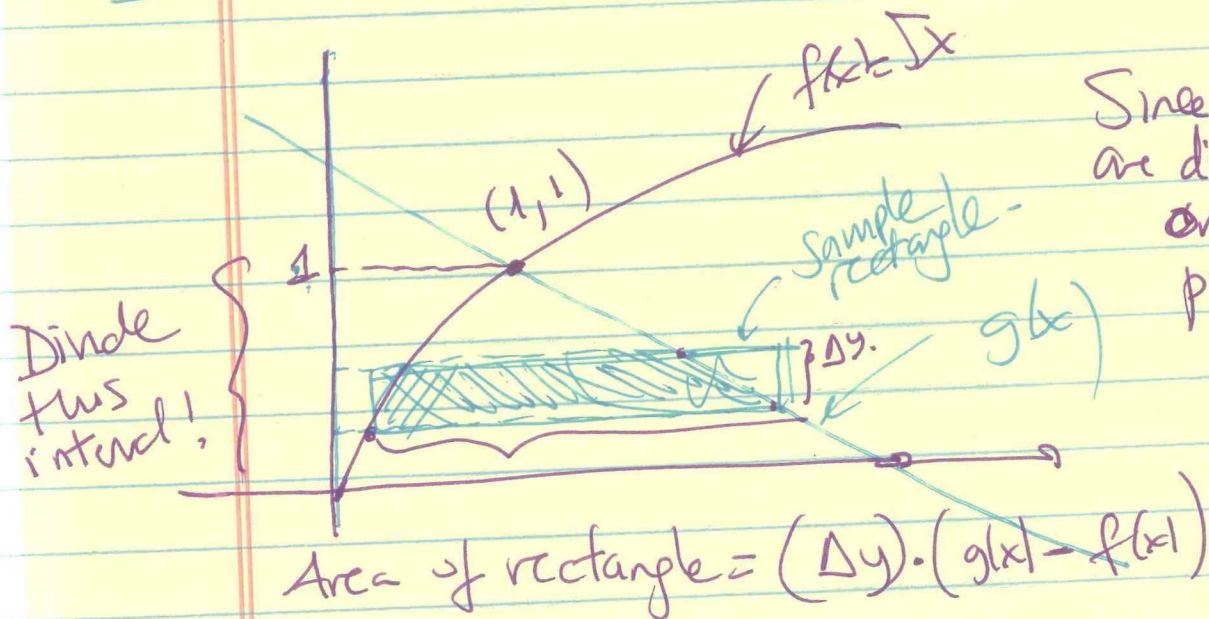 f(x)=√x
Since
are di
on
p
(1,1)
sample
rectangle
1
g(x)
Δy.
Divide
this
interval!
Area of rectangle = (Δy)·(g(x) - f(x))